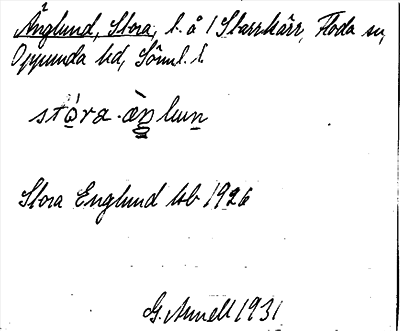 Änglund, Stora, l. å 1 Starrkärr, Floda sn,
Oppunda hd, Söml. l.
stóra-æ̀ŋlun
Stora Englund tsb 1926
G. Arnell 1931